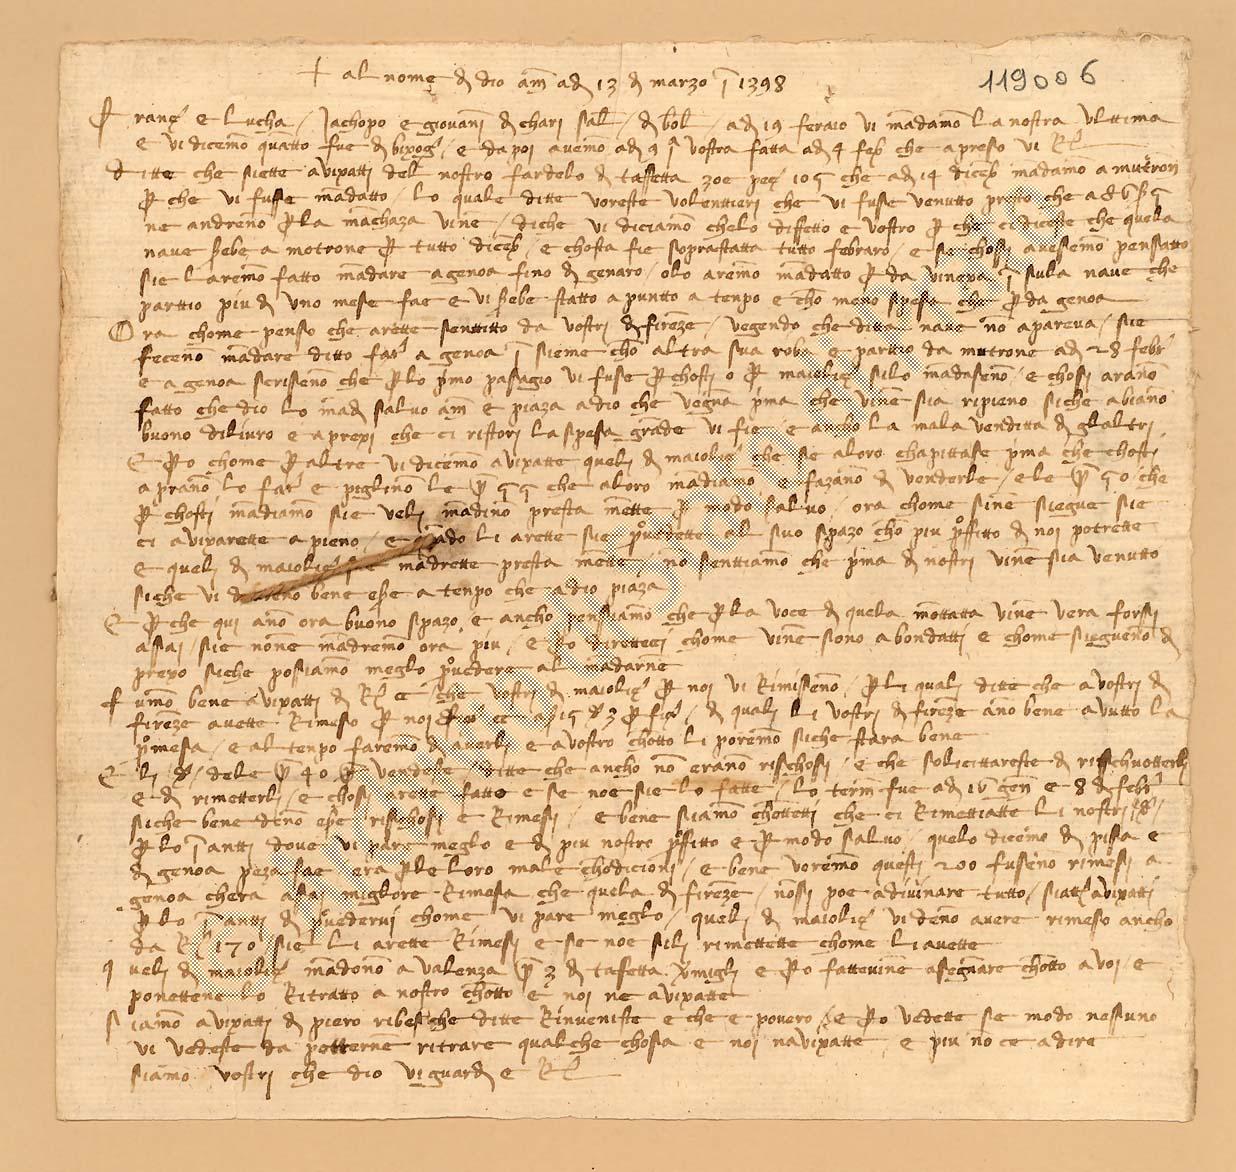 + al nome d dio am ad 13 d marzo 1398
119006
Franco e Lucha Jachopo e giovani d chari sal d bol ad 19 feraio vi madamo la nostra ultima
e vi dicemo quatto fue d bixog e dapoi avemo ad 9 vostra fatta ad 4 feb che apreso vi R
ditte che siette avixatti del nostro fardelo d taffetta zoe peze 105 che ad 14 diceb madamo a mutron
p che vi fusse madatto lo quale ditte voreste volenttieri che vi fuse venutto presto che
ne andreno p la machaza vine diche vi diciamo chelo diffetto e vostro p che ci diceste che quela
nave sebe a motrone p tutto diceb e chosta fie soprastatta tutto febraro e se chosi avessemo penssatto
sie l aremo fatto madare a genoa fino d genaro olo aremo madatto p da vinexa sula nave che
parttio piu d uno mese fae e vi sebe statto a puntto a tenpo e cho meno spesa che p da genoa
Ora chome penso che arette senttitto da vostri d fireze vegendo che ditta nave no apareva sie
feceno madare ditto far a genoa sieme cho altra sua roba e partio da mutrone ad 28 febr
e a genoa scrisseno che p lo pmo passagio vi fuse p chosti o p maiolich silo madaseno e chosi arano
fatto che dio lo mad salvo am e piaza a dio che vegna pma che vine sia ripieno siche abiano
buono diliuro e aprexi che ci ristori la spesa grade vi fie e ancho la mala venditta d glaltri
E po chome p altre vi dicemo avixatte queli d maiolich che se aloro chapittase pma che chosti
aprano lo far e piglino le p 55 che aloro madiamo e fazano d venderle e le p 50 che
p chosti madiamo sie veli madino presta mette p modo salvo ora chome sine siegue sie
ci avixarette a pieno e li arette sie pvedette al suo spazo cho piu pffitto d noi potrette
e queli d maiolich sie madrette presta mette no senttiamo che pma d nostri vine sia venutto
siche vi bene ese a tenpo che a dio piaza
E p che qui ano ora buono spazo e ancho pensiamo che p la voce d quela mottatta vine vera forssi
assai sie none madremo ora piu e po diretteci chome vine sono abondatti e chome siegueno d
prexo siche posiamo meglo pvedere al madarne
Fumo bene avixatti d R che vostri d maiolich p noi vi Rimisseno p li quali ditte che a vostri d
fireze avette Rimeso p noi d quali li vostri d fireze ano bene avutto la
pmesa e al tenpo faremo d averli e a vostro chotto li poremo siche stara bene
E li dele p 40 vendeste ditte che ancho no erano rischossi e che solicittareste d risschuotterli
e d rimetterli e chosi arette fatto e se noe sie lo fatte lo term fue ad 16 gen e 8 d febr
siche bene deno ese risschossi e Rimessi e bene siamo chotteti che ci Rimettiatte li nostri
p lo antti dove vi pare meglo e d piu nostro pffitto e p modo salvo quelo dicemo d pissa e
d genoa peza fae era p le loro male chodicioni e bene voremo questi 200 fuseno rimessi a
genoa chera assai migliore Rimesa che quela d fireze nossi poe adivinare tutto siatte avixatti
p lo antti d pvedervi chome vi pare meglo queli d maiolich vi deno avere rimeso ancho
da R 170 sie li arette Rimessi e se noe sili rimettette chome li avette
Queli d maiolich madono a valenza p 3 d taffetta e po fattevine assegnare chotto a voi e
ponettene lo Ritratto a nostro chotto e noi ne avixatte
Siamo avixatti d piero ribes che ditte Rinveniste e che e povero e po vedette se modo nessuno
vi vedeste da potterne ritrare qualche chossa e noi navixatte e piu no ce a dire
siamo vostri che dio vi guard e R